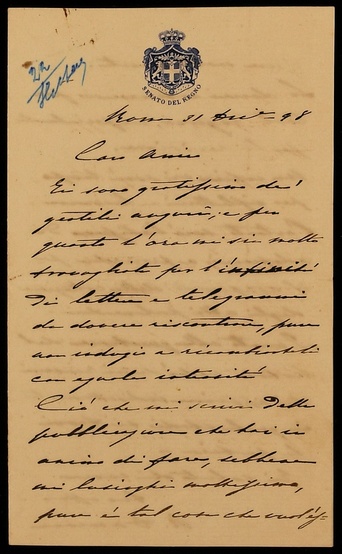 SENATO DEL REGNO
Roma 31 Dic.e 98
Caro Amico
Ti sono gratissimo de'
gentili auguri; e per
quanto l'ora mi sia molto
travagliata per l'infinità
di lettere e telegrammi
da dovere riscontrare, pure
non indugio a ricambiarteli
con eguale intensità
Ciò che mi scrivi della
pubblicazione che hai in
animo di fare, sebbene
mi lusinghi moltissimo,
pure è tal cosa che vuol es-